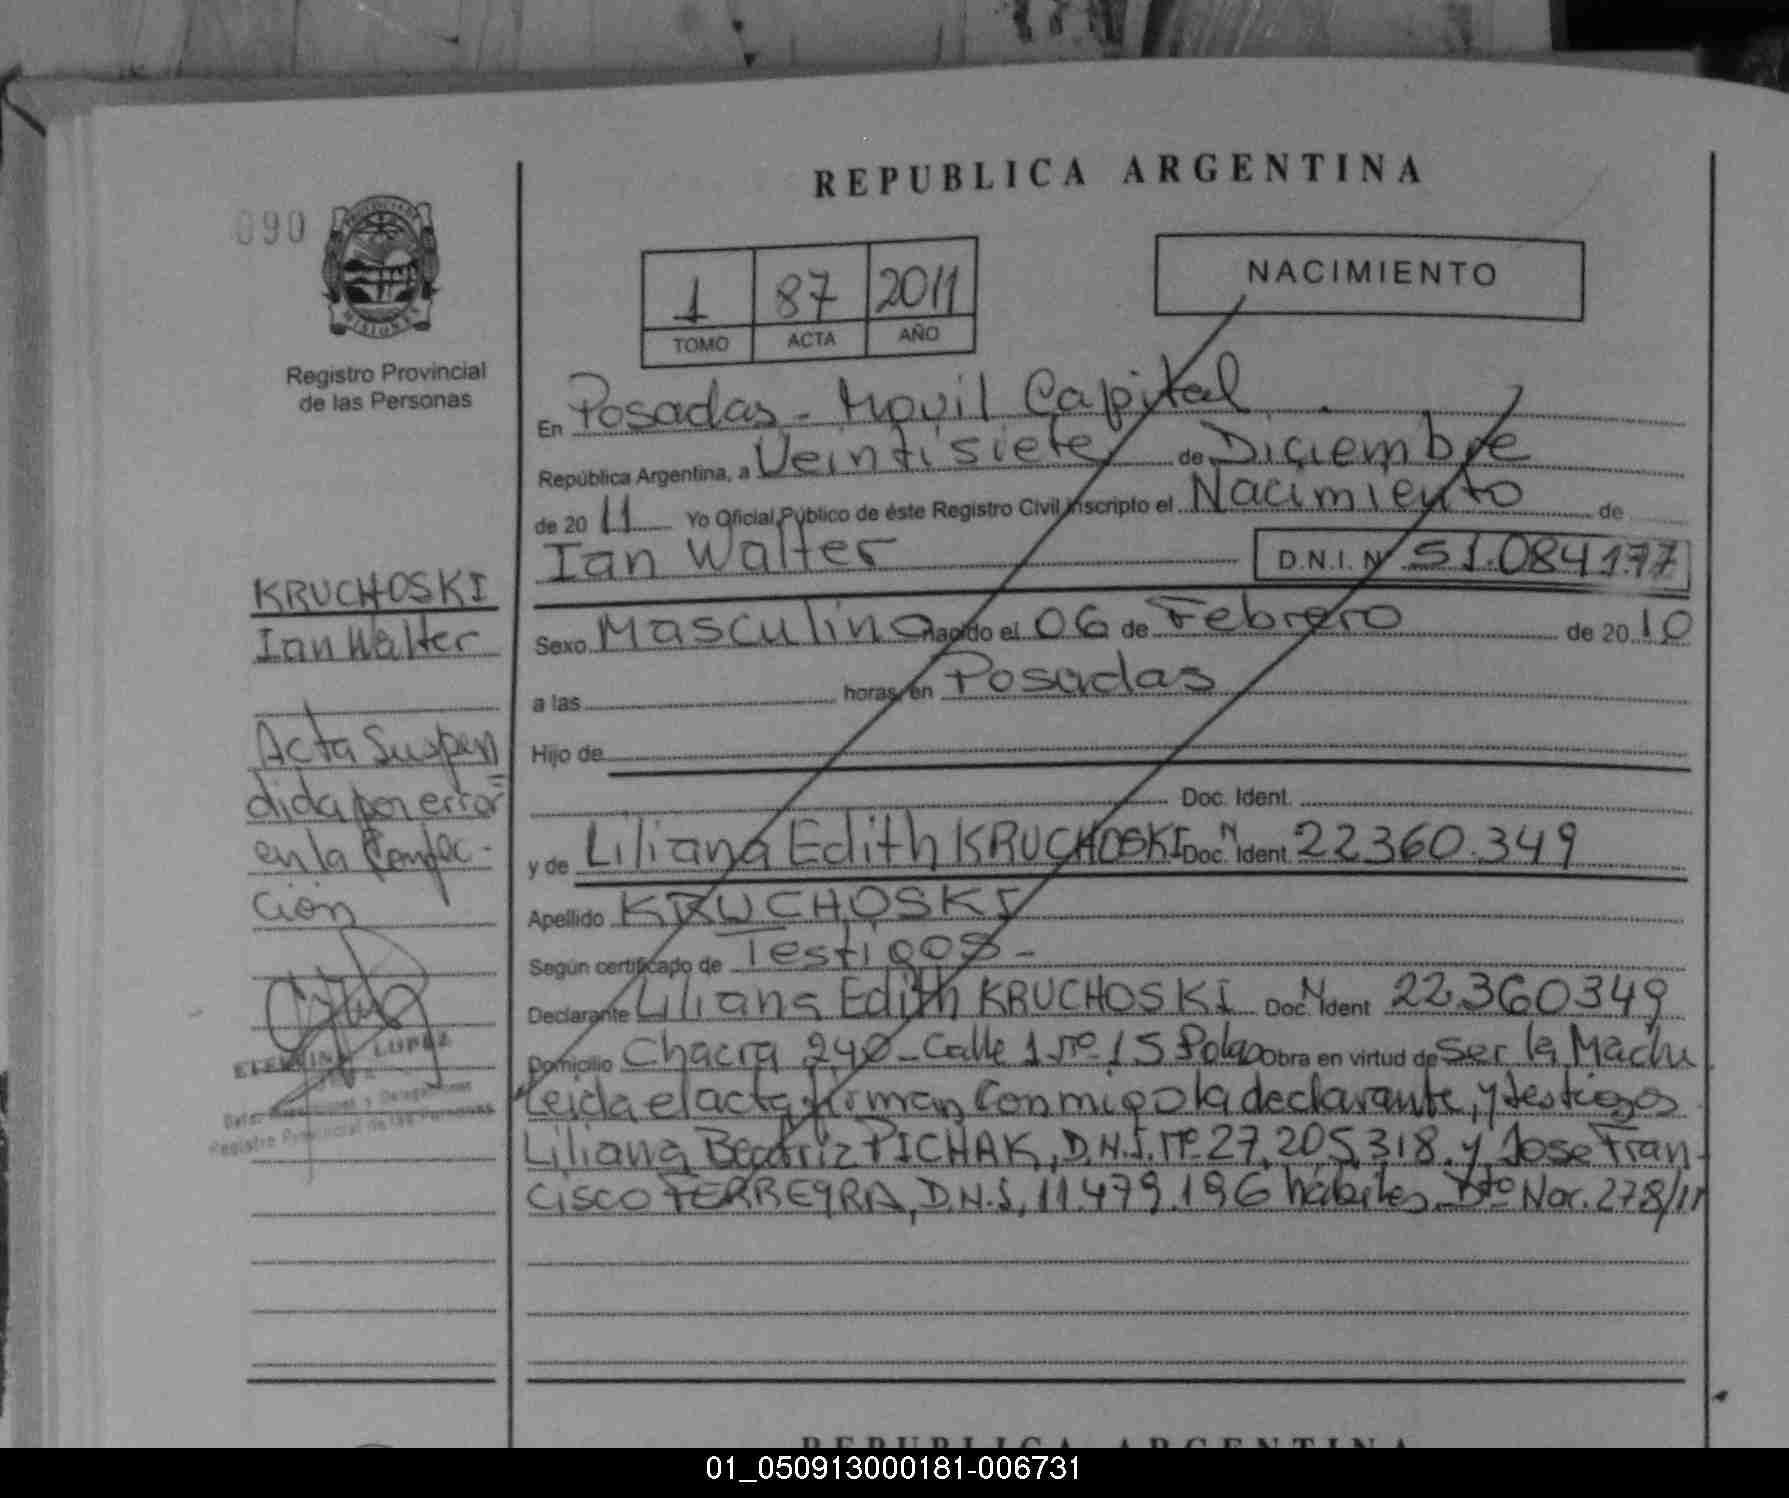 REPUBLICA ARGENTINA
090
PROVINCIA DE
MISIONES
Registro Provincial
de las Personas
1 87 2011
TOMO ACTA AÑO
NACIMIENTO
En Posadas - Movil Capital
República Argentina, a Veintisiete de Diciembre
de 2011 Yo Oficial Público de éste Registro Civil Inscripto el Nacimiento de
Ian Walter D.N.I. Nº 51.084.177
Sexo Masculino Nacido el 06 de Febrero de 2010
a las horas en Posadas
Hijo de
Doc. Ident.
y de Liliana Edith KRUCHOSKI Doc. N Ident 22360.349
Apellido KRUCHOSKI
Según certificado de Testigos -
Declarante Liliana Edith KRUCHOSKI Doc. N Ident 22.360349
Domicilio Chacra 240 - Calle 1 Nº 15 Obra en virtud de Ser la
Leida el acta firman conmigo la declarante, y testigos
Liliana Beatriz PICHAK, D.N.I. Nº 27.205.318. y Jose Fran-
cisco FERREYRA, D.N.I. 11.479.196 hábiles. Dto Nor. 278/11
KRUCHOSKI
Ian Walter
Acta Suspen
dida por error
en la Confec-
ción
LOPEZ
Registro Provincial de las Personas
REPUBLICA ARGENTINA
01_050913000181-006731